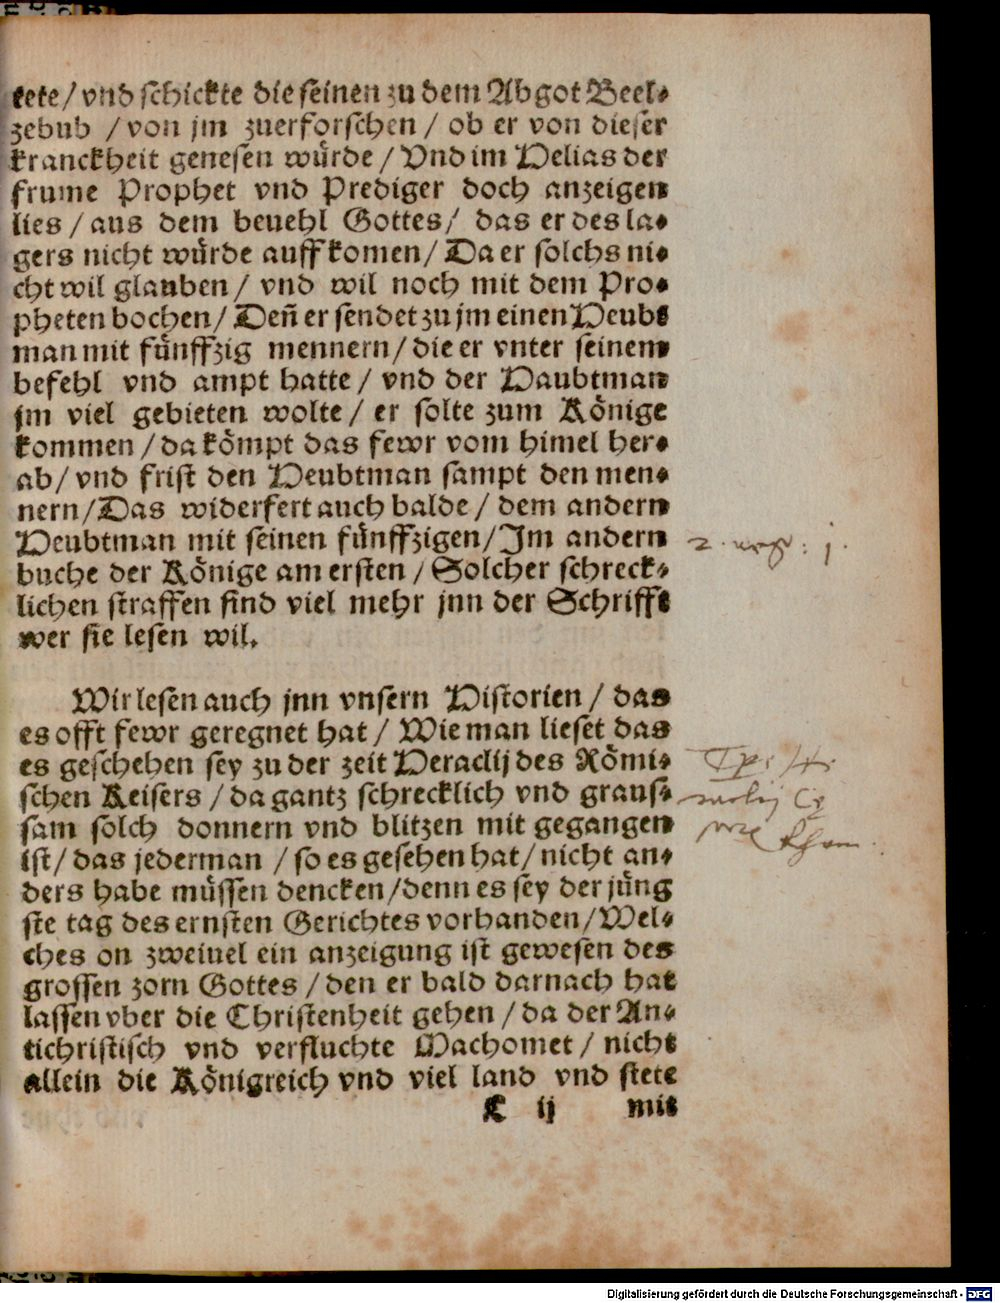 tete / vnd schickte die seinen zu dem Abgot Beel⸗
zebub / von jm zuerforschen / ob er von dieser
kranckheit genesen würde / Vnd im Helias der
frume Prophet vnd Prediger doch anzeigen
lies / aus dem beuehl Gottes / das er des la⸗
gers nicht würde auff komen / Da er solchs ni⸗
cht wil glauben / vnd wil noch mit dem Pro⸗
pheten bochen / Deñ er sendet zu jm einen Heubt
man mit fünffzig mennern / die er vnter seinem
befehl vnd ampt hatte / vnd der Haubtman
jm viel gebieten wolte / er solte zum Könige
kommen / da kömpt das fewr vom himel her⸗
ab / vnd frist den Heubtman sampt den men⸗
nern / Das widerfert auch balde / dem andern
Heubtman mit seinen fünffzigen / Im andern
buche der Könige am ersten / Solcher schreck⸗
lichen straffen sind viel mehr jnn der Schrifft
wer sie lesen wil.
Wir lesen auch jnn vnsern Historien / das
es offt fewr geregnet hat / Wie man lieset das
es geschehen sey zu der zeit Heraclij des Römi⸗
schen Keisers / da gantz schrecklich vnd graus⸗
sam solch donnern vnd blitzen mit gegangen
ist / das jederman / so es gesehen hat / nicht an⸗
ders habe müssen dencken / denn es sey der jüng
ste tag des ernsten Gerichtes vorhanden / Wel⸗
ches on zweiuel ein anzeigung ist gewesen des
grossen zorn Gottes / den er bald darnach hat
lassen vber die Christenheit gehen / da der An⸗
tichristisch vnd verfluchte Machomet / nicht
allein die Königreich vnd viel land vnd stete
C ij mit
Digitalisierung gefördert durch die Deutsche Forschungsgemeinschaft - DFG